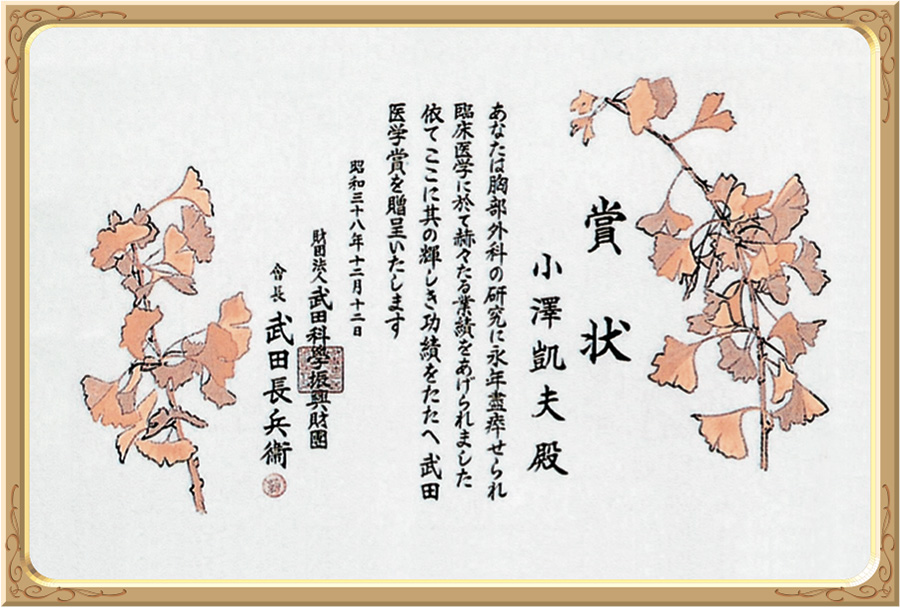 賞状
小澤凱夫殿
あなたは胸部外科の研究に永年盡瘁せられ
臨床医学に於て赫々たる業績をあげられました
依てここに其の輝しき功績をたたへ武田
医学賞を贈呈いたします
昭和三十八年十二月十二日
財団法人武田科學振興財團
會長武田長兵衞